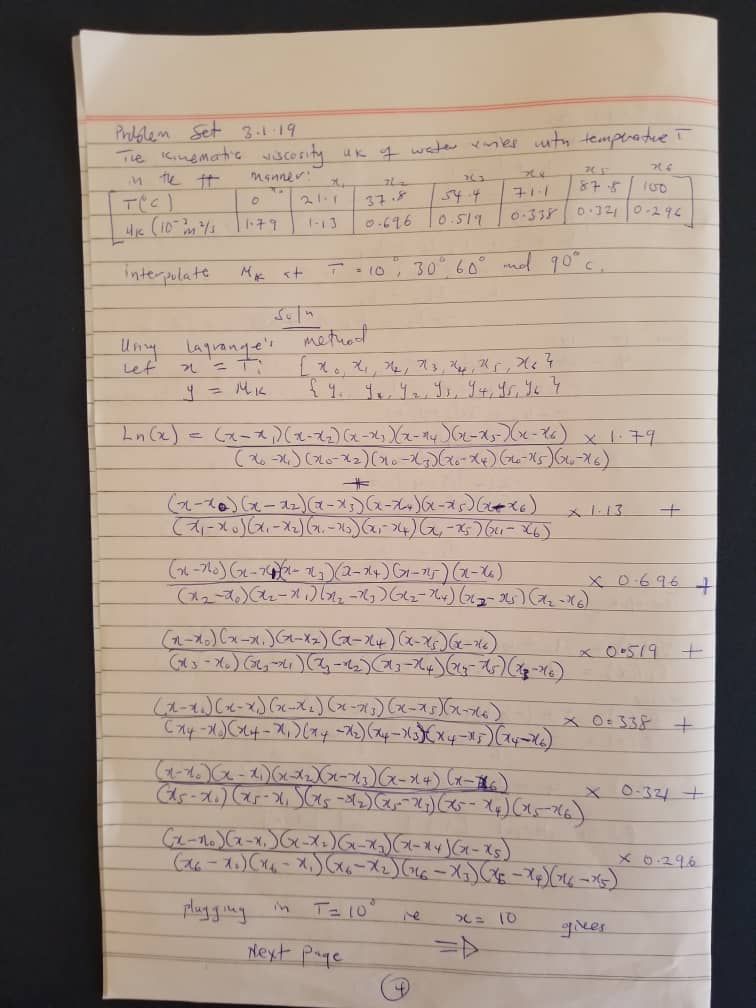 Problem Set 3.1.19
The kinematic viscosity μk of water varies with temperature T
in the ff manner:
x₁ x₂ x₃ x₄ x₅ x₆
T(°C) 0 21.1 37.8 54.4 71.1 87.8 100
μk (10⁻³ m²/s 1.79 1.13 0.696 0.519 0.338 0.321 0.296
interpolate μk at T = 10°, 30°, 60° and 90°c.
Soln
Using Lagrange's method
Let x = T: { x₀, x₁, x₂, x₃, x₄, x₅, x₆ }
y = μk { y₀ y₁, y₂, y₃, y₄, y₅, y₆ }
Ln(x) = (x-x₁)(x-x₂)(x-x₃)(x-x₄)(x-x₅)(x-x₆) × 1.79
(x₀-x₁)(x₀-x₂)(x₀-x₃)(x₀-x₄)(x₀-x₅)(x₀-x₆)
+
(x-x₀)(x-x₂)(x-x₃)(x-x₄)(x-x₅)(x-x₆) × 1.13 +
(x₁-x₀)(x₁-x₂)(x₁-x₃)(x₁-x₄)(x₁-x₅)(x₁-x₆)
(x-x₀)(x-x₁)(x-x₃)(x-x₄)(x-x₅)(x-x₆) × 0.696 +
(x₂-x₀)(x₂-x₁)(x₂-x₃)(x₂-x₄)(x₂-x₅)(x₂-x₆)
(x-x₀)(x-x₁)(x-x₂)(x-x₄)(x-x₅)(x-x₆) × 0.519 +
(x₃-x₀)(x₃-x₁)(x₃-x₂)(x₃-x₄)(x₃-x₅)(x₃-x₆)
(x-x₀)(x-x₁)(x-x₂)(x-x₃)(x-x₅)(x-x₆) × 0.338 +
(x₄-x₀)(x₄-x₁)(x₄-x₂)(x₄-x₃)(x₄-x₅)(x₄-x₆)
(x-x₀)(x-x₁)(x-x₂)(x-x₃)(x-x₄)(x-x₆) × 0.321 +
(x₅-x₀)(x₅-x₁)(x₅-x₂)(x₅-x₃)(x₅-x₄)(x₅-x₆)
(x-x₀)(x-x₁)(x-x₂)(x-x₃)(x-x₄)(x-x₅) × 0.296
(x₆-x₀)(x₆-x₁)(x₆-x₂)(x₆-x₃)(x₆-x₄)(x₆-x₅)
plugging in T=10° ie x = 10 gives
Next page ⇒
4